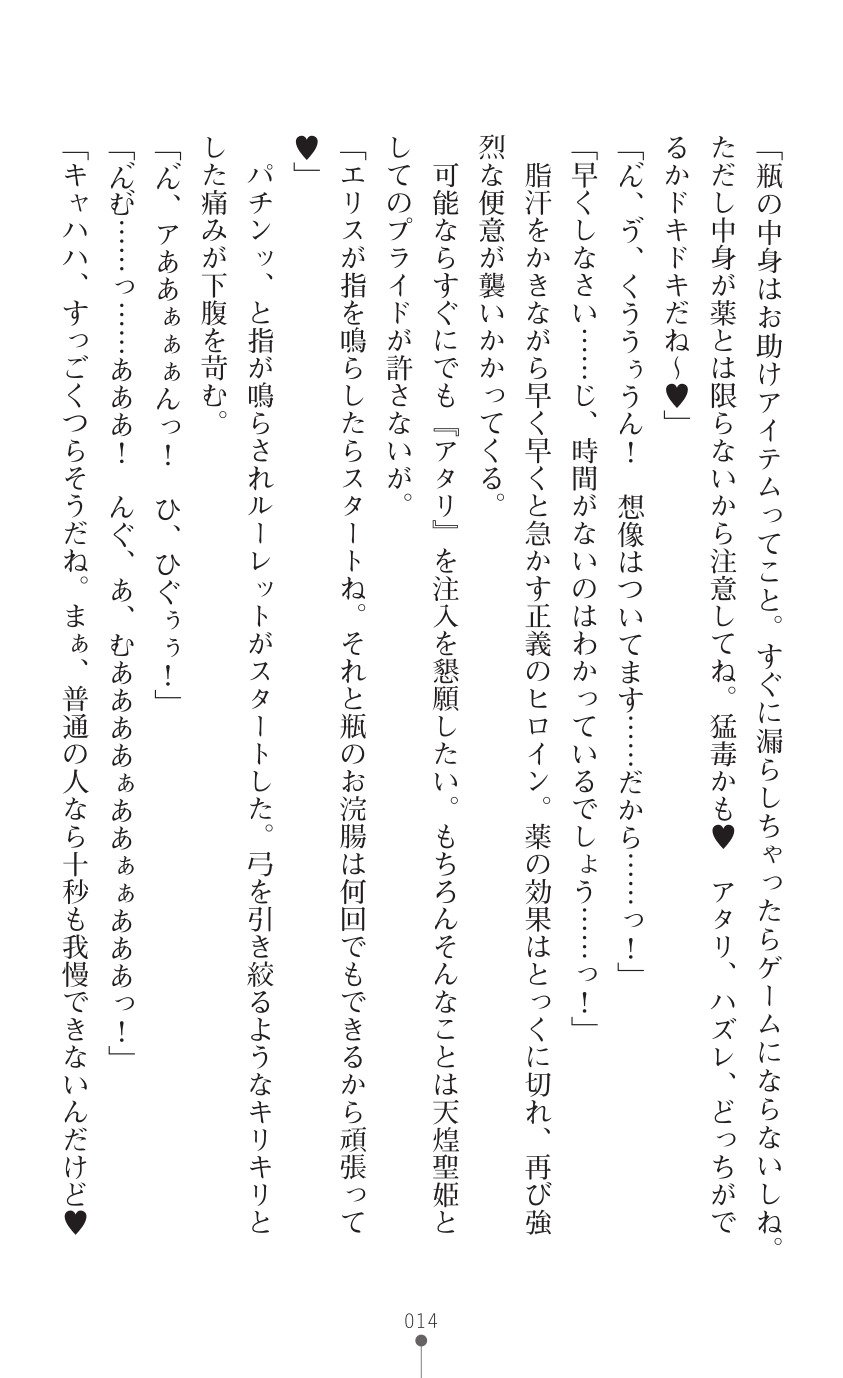 「瓶の中身はお助けアイテムってこと。すぐに漏らしちゃったらゲームにならないしね。
ただし中身が薬とは限らないから注意してね。猛毒かも♥　アタリ、ハズレ、どっちがで
るかドキドキだね～♥」
「ん゛、ゔ、くううぅうん！　想像はついてます……だから……っ！」
「早くしなさい……じ、時間がないのはわかっているでしょう……っ！」
　脂汗をかきながら早く早くと急かす正義のヒロイン。薬の効果はとっくに切れ、再び強
烈な便意が襲いかかってくる。
　可能ならすぐにでも『アタリ』を注入を懇願したい。もちろんそんなことは天煌聖姫と
してのプライドが許さないが。
「エリスが指を鳴らしたらスタートね。それと瓶のお浣腸は何回でもできるから頑張って
♥」
　パチンッ、と指が鳴らされルーレットがスタートした。弓を引き絞るようなキリキリと
した痛みが下腹を苛む。
「ん゛、アああぁぁぁんっ！　ひ、ひぐぅぅ！」
「ん゛む……っ……あああ！　んぐ、あ、むああああぁああぁぁあああっ！」
「キャハハ、すっごくつらそうだね。まぁ、普通の人なら十秒も我慢できないんだけど♥
014